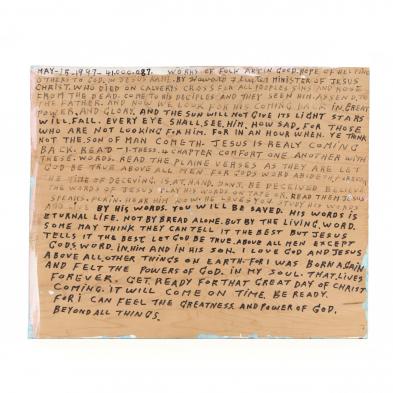 MAY-15-1997-41,000,087. WORKS OF FOLK ART IN GOOD. HOPE OF HELPING
OTHERS TO GOD, IN JESUS NAME. BY Howard Finster MINISTER OF JESUS
CHRIST. WHO DIED ON CALVERYS CROSS FOR ALL PEOPLES SINS AND ROSE
FROM THE DEAD. COME TO HIS DECIPLES AND THEY SEEN HIM. ASSEND, TO
THE FATHER. AND NOW WE LOOK FOR HIS COMING BACK IN, GREAT
POWER, AND GLORY. AND THE SUN WILL NOT GIVE ITS LIGHT STARS
WILL. FALL. EVERY EYE SHALL, SEE, HIM, HOW SAD, FOR THOSE
WHO ARE NOT LOOKING FOR HIM. FOR IN AN HOUR WHEN, YE THINK
NOT THE SON OF MAN COMETH. JESUS IS REALY COMING
BACK. READ 1-THESS. 4 CHAPTER COMFORT ONE ANOTHER WITH
THESE. WORDS. READ THE PLAINE VERSES AS THEY ARE LET
GOD BE TRUE ABOVE ALL MEN. FOR GODS WORD ABIDETH, FOREVER
THE TIME OF DECEIVING, IS AT, HAND. DONT, BE DECEIVED BELIEVE
THE WORDS OF JESUS PLAY HIS WORDS ON TAPE OR, READ THEM JESUS
SPEAKS PLAIN. HEAR HIM STUDY HIS WORDS
BY HIS WORD. YOU WILL BE SAVED. HIS WORDS IS
ETURNAL LIFE. NOT BY BREAD ALONE. BUT BY THE LIVING, WORD.
SOME MAY THINK THEY CAN TELL IT THE BEST BUT JESUS
TELLS IT THE BEST LET GOD BE TRUE. ABOVE ALL MEN EXCEPT
GODS, WORD. IN HIM AND IN HIS SON. I LOVE GOD AND JESUS
ABOVE ALL, OTHER THINGS ON EARTH. FOR I WAS BORN AGAIN
AND FELT THE POWERS OF GOD. IN MY SOUL. THAT, LIVES
FOREVER. GET, READY FOR THAT GREAT DAY OF CHRIST
COMING. IT WILL COME ON TIME. BE READY.
FOR I CAN FEEL THE GREATNESS AND POWER OF GOD.
BEYOND ALL THINGS.